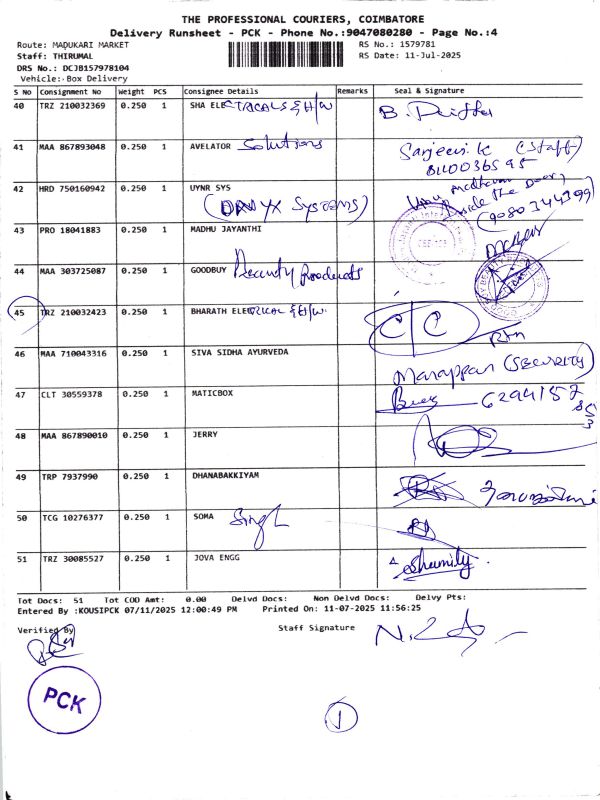 THE PROFESSIONAL COURIERS, COIMBATORE
Delivery Runsheet - PCK - Phone No.:9047080280 - Page No.:4
Route: MADUKARI MARKET RS No.: 1579781
Staff: THIRUMAL RS Date: 11-Jul-2025
DRS No.: DCJB157978104
Vehicle: Box Delivery
S No Consignment No Weight PCS Consignee Details Remarks Seal & Signature
40 TRZ 210032369 0.250 1 SHA ELECTRICALS & H/W
41 MAA 867893048 0.250 1 AVELATOR Solutions Sanjeevi.K (Staff)
42 HRD 750160942 0.250 1 UYNR SYS
(ONYX SYSTEMS) (9080344399)
43 PRO 18041883 0.250 1 MADHU JAYANTHI
44 MAA 303725087 0.250 1 GOODBUY Products
45 TRZ 210032423 0.250 1 BHARATH ELETRICAL & H/W. C/C
46 MAA 710043316 0.250 1 SIVA SIDHA AYURVEDA Marappan (SECURITY)
47 CLT 30559378 0.250 1 MATICBOX 6294157
48 MAA 867890010 0.250 1 JERRY
49 TRP 7937990 0.250 1 DHANABAKKIYAM
50 TCG 10276377 0.250 1 SOMA
51 TRZ 30085527 0.250 1 JOVA ENGG
Tot Docs: 51 Tot COD Amt: 0.00 Delvd Docs: Non Delvd Docs: Delvy Pts:
Entered By :KOUSIPCK 07/11/2025 12:00:49 PM Printed On: 11-07-2025 11:56:25
Verified By Staff Signature
PCK
1